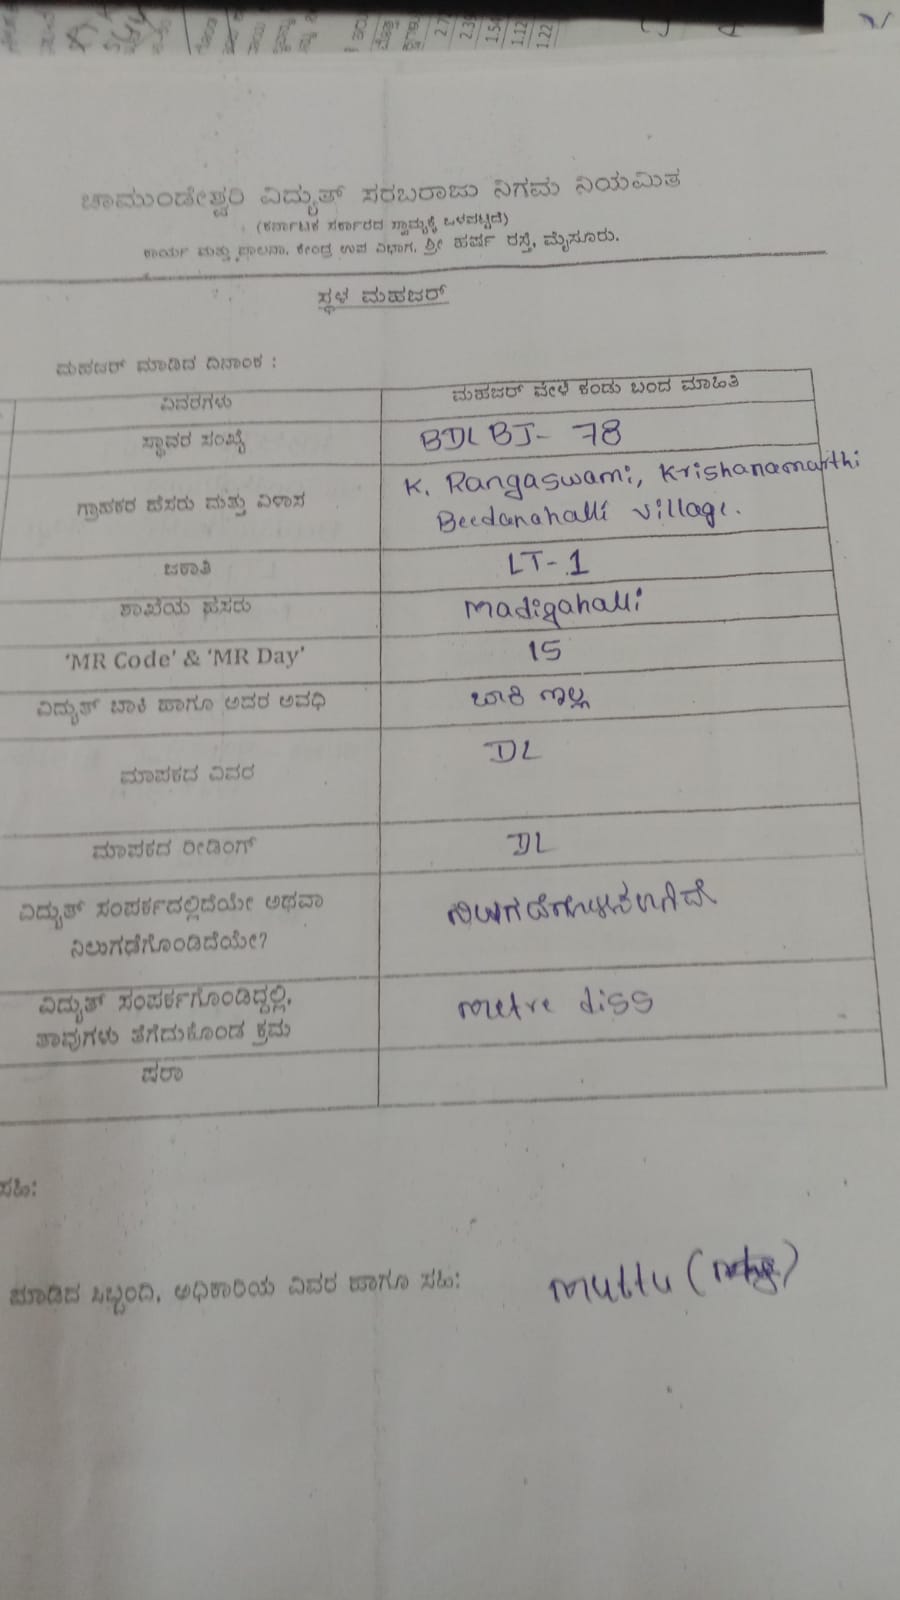 2.7
2.39
1.54
1.12
1.22
ಚಾಮುಂಡೇಶ್ವರಿ ವಿದ್ಯುತ್ ಸರಬರಾಜು ನಿಗಮ ನಿಯಮಿತ
(ಕರ್ನಾಟಕ ಸರ್ಕಾರದ ಸ್ವಾಮ್ಯಕ್ಕೆ ಒಳಪಟ್ಟಿದೆ)
ಕಾರ್ಯ ಮತ್ತು ಪಾಲನಾ, ಕೇಂದ್ರ ಉಪ ವಿಭಾಗ, ಶ್ರೀ ಹರ್ಷ ರಸ್ತೆ, ಮೈಸೂರು.
ಸ್ಥಳ ಮಹಜರ್
ಮಹಜರ್ ಮಾಡಿದ ದಿನಾಂಕ :
ವಿವರಗಳು ಮಹಜರ್ ವೇಳೆ ಕಂಡು ಬಂದ ಮಾಹಿತಿ
ಸ್ಥಾವರ ಸಂಖ್ಯೆ BDL BJ- 78
ಗ್ರಾಹಕರ ಹೆಸರು ಮತ್ತು ವಿಳಾಸ K. Rangaswami, Krishanamurthi
Beedanahalli village.
ಜಕಾತಿ LT-1
ಶಾಖೆಯ ಹೆಸರು Madigahalli
'MR Code' & 'MR Day' 15
ವಿದ್ಯುತ್ ಬಾಕಿ ಹಾಗೂ ಅದರ ಅವಧಿ ಬಾಕಿ ಇಲ್ಲ
ಮಾಪಕದ ವಿವರ DL
ಮಾಪಕದ ರೀಡಿಂಗ್ DL
ವಿದ್ಯುತ್ ಸಂಪರ್ಕದಲ್ಲಿದೆಯೇ ಅಥವಾ
ನಿಲುಗಡೆಗೊಂಡಿದೆಯೇ?
ವಿದ್ಯುತ್ ಸಂಪರ್ಕಗೊಂಡಿದ್ದಲ್ಲಿ,
ತಾವುಗಳು ತೆಗೆದುಕೊಂಡ ಕ್ರಮ metre diss
ಷರಾ
ಸಹಿ:
ಮಾಡಿದ ಸಿಬ್ಬಂದಿ, ಅಧಿಕಾರಿಯ ವಿವರ ಹಾಗೂ ಸಹಿ: muttu